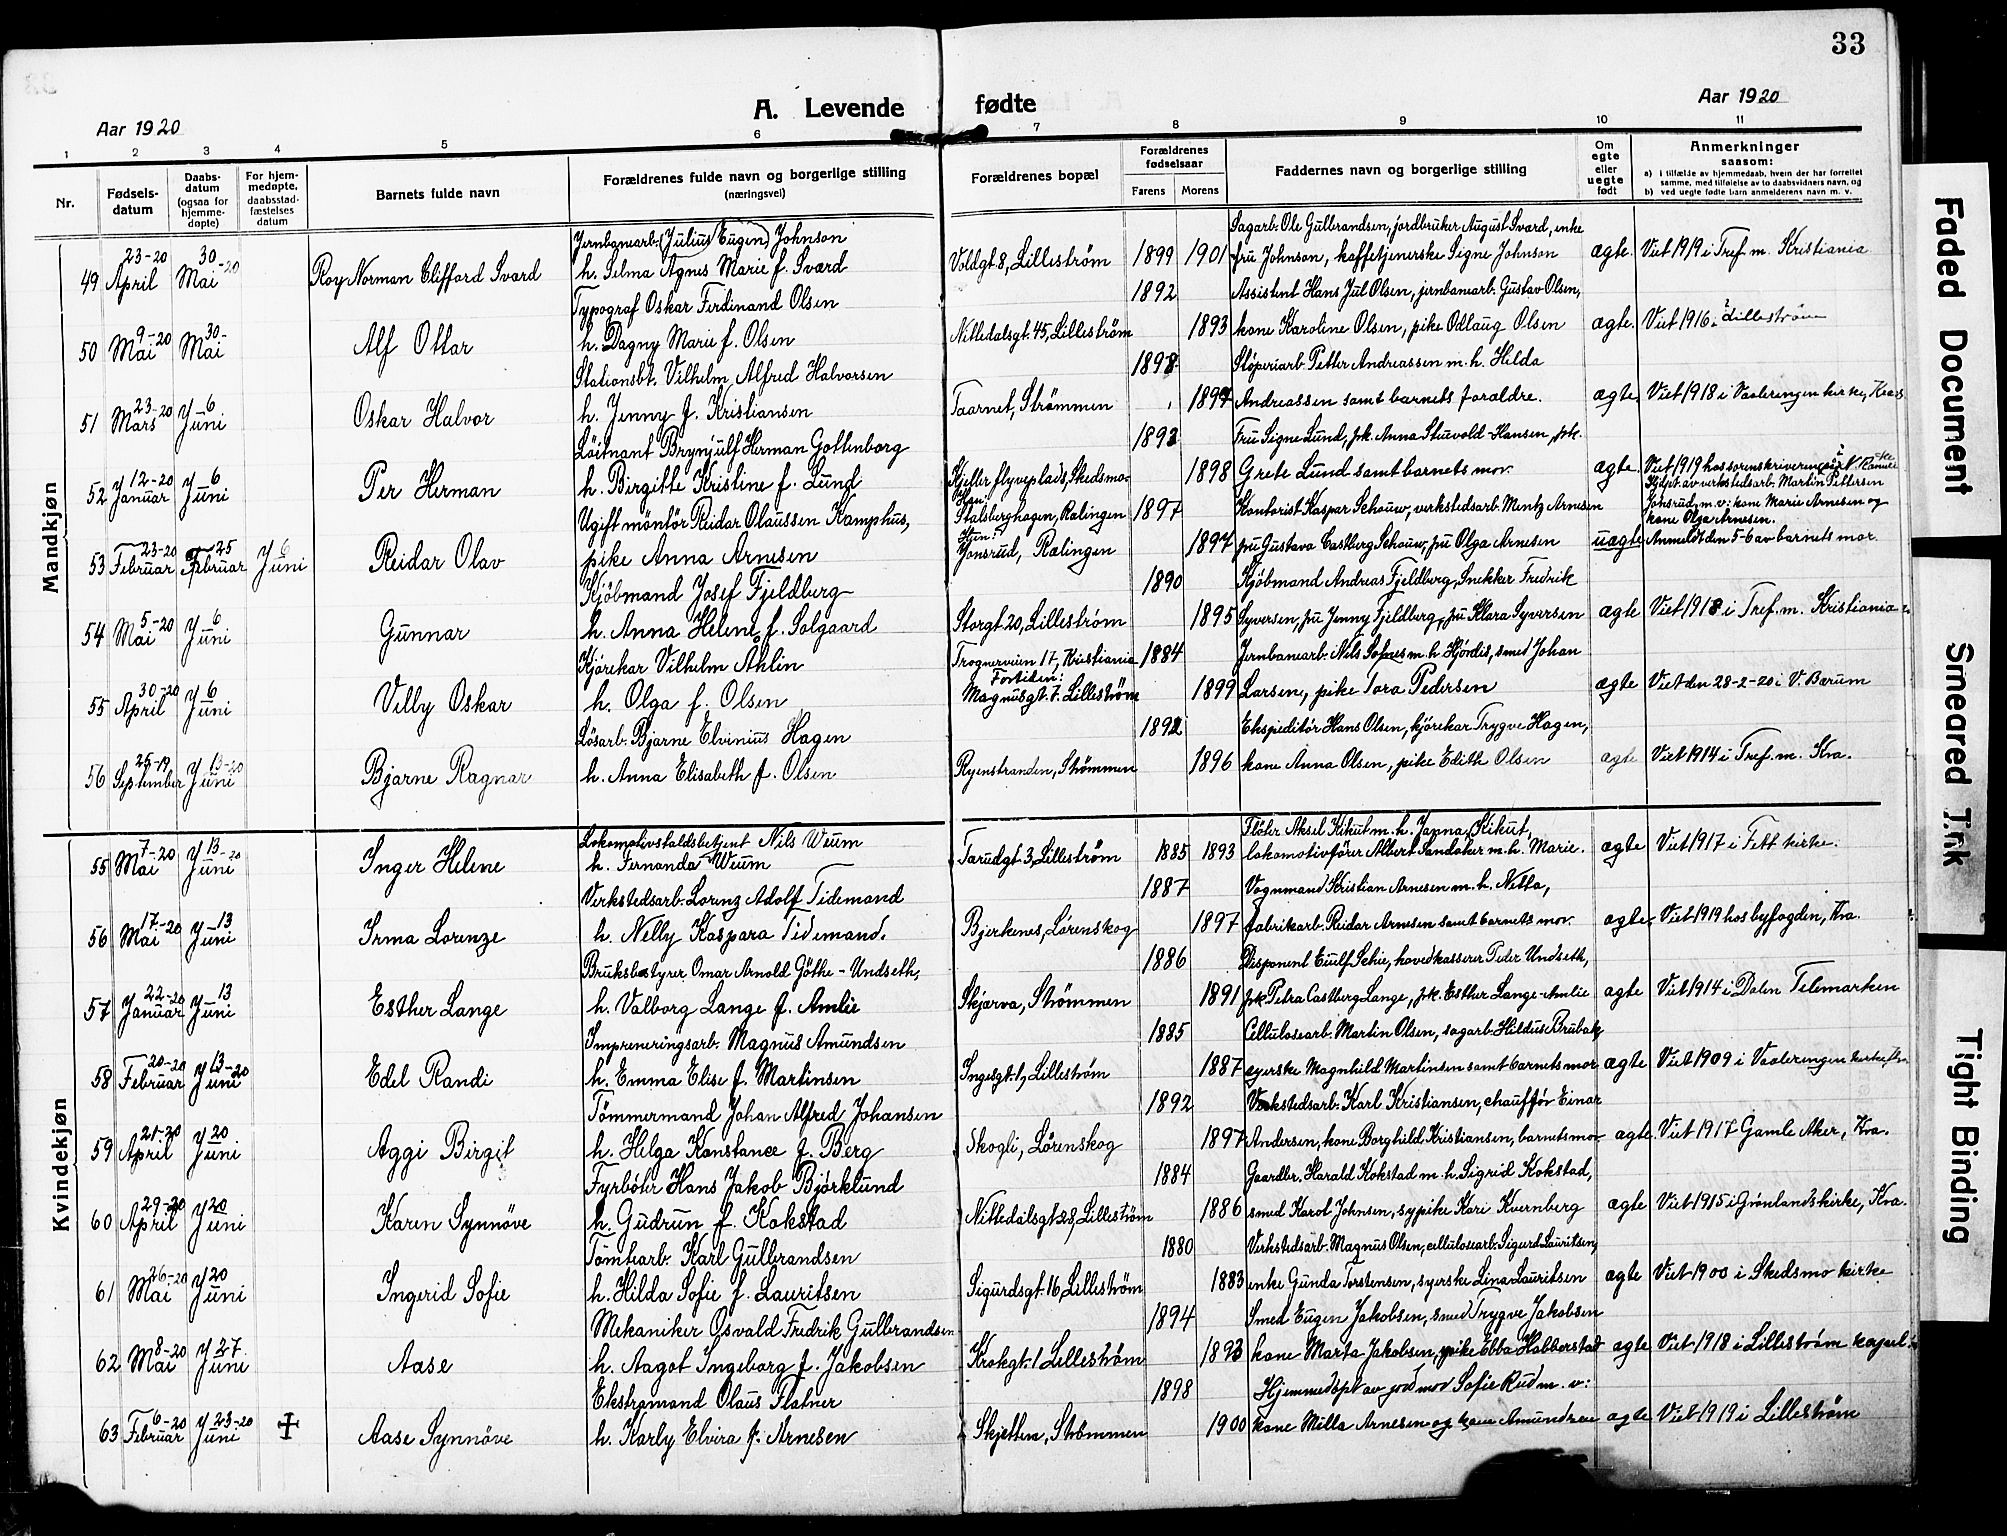 33
A. Levende fødte
Aar 1920
Aar 1920
1 2 3 4 5 6 7 8 9 10 11
Nr.
Fødsels-datum
Daabs-datum (ogsaa for hjemme-døpte)
For hjem-medøpte, daabsstad-fæstelses datum
Barnets fulde navn
Forældrenes fulde navn og borgerlige stilling (næringsvei)
Forældrenes bopæl
Forældrenes fødselsaar
Farens Morens
Faddernes navn og borgerlige stilling
Om egte eller uegte født
Anmerkninger saasom:
a) i tilfælde av hjemmedaab, hvem der har forrettet samme, med tilføielse av to daabsvidners navn, og
b) ved uegte fødte barn anmelderens navn m. v.
Mandkjøn
Jernbanearb. (Julius Eugen) Johnson Sagarb. Ole Gulbrandsen, jordbruker August Svard, enke
49 23-20 April 30-20 Mai Roy Norman Clifford Svard h. Selma Agnes Marie f. Svard Voldgt. 8, Lillestrøm 1899 1901 fru Johnson, kaffetjenerske Signe Johnson ægte. Viet 1919 i Tref. m. Kristiania
Typograf Oskar Ferdinand Olsen 1892 Assistent Hans Jul Olsen, jernbanearb. Gustav Olsen,
50 9-20 Mai 30- Mai Alf Ottar h. Dagny Marie f. Olsen Nittedalsgt. 45, Lillestrøm 1893 kone Karoline Olsen, pike Odlaug Olsen ægte. Viet 1916 i Lillestrøm
Stationsbt. Vilhelm Alfred Halvorsen 1898 Støperiarb. Petter Andreassen m. h. Hilda
51 23-20 Mars 6 Juni Oskar Halvor h. Jenny f. Kristiansen Taarnet, Strømmen 1897 Andreassen samt barnets forældre. ægte Viet 1918 i Vaalerengen kirke,
Löitnant Brynjulf Herman Gottenborg 1892 Fru Signe Lund, frk. Anna Stuevold-Hansen, frk.
52 12-20 Januar 6 Juni Per Herman h. Birgitte Kristine f. Lund Kjeller flyveplads, Skedsmo 1898 Grete Lund samt barnets mor. ægte. Viet 1919 hos sorenskriveren
Ugift montör Reidar Olaussen Kamphus, Stalsberghagen, Ralingen 1897 Kontorist Kaspar Schouw, verkstedsarb. Mentz Arnesen Hjdpt. av verkstedsarb. Martin Pettersen Jonsrud, m. v: kone Marie Arnesen og kone Olga Arnesen.
53 23-20 Februar 25 Februar 6 Juni Reidar Olav pike Anna Arnesen Jonsrud, Ralingen 1897 fru Gustava Castberg Schouw, fru Olga Arnesen uægte Anmeldt den 5-6 av barnets mor.
Kjøbmand Josef Fjeldberg 1890 Kjøbmand Andreas Fjeldberg, Snekker Fredrik
54 5-20 Mai 6 Juni Gunnar h. Anna Helene f. Solgaard Storgt. 20, Lillestrøm 1895 Syversen, fru Jenny Fjeldberg, fru Klara Syversen ægte Viet 1918 i Tref. m. Kristiania
Kjørekar Vilhelm Ahlin Trognerveien 17, Kristiania 1884 Jernbanearb. Nils Sofnes m. h. Hjördis, smed Johan
55 30-20 April 6 Juni Villy Oskar h. Olga f. Olsen Fortiden: Magnusgt. 7. Lillestrøm 1899 Larsen, pike Tora Pedersen ægte Viet den 28-2-20 i V. Bærum
Løsarb. Bjarne Elvinius Hagen 1892 Ekspeditör Hans Olsen, kjörekar Trygve Hagen,
56 25-19 September 13-20 Juni Bjarne Ragnar h. Anna Elisabeth f. Olsen Ryenstranden, Strømmen 1896 kone Anna Olsen, pike Edith Olsen ægte Viet 1914 i Tref. m. Kra.
Kvindekjøn
Lokomotivstaldsbetjent Nils Weum Fløter Aksel Kikut m. h. Janna Kikut,
55 7-20 Mai 13-20 Juni Inger Helene h. Fernanda Weum Tarudgt. 3, Lillestrøm 1885 1893 lokomotivfører Albert Sandaker m. h. Marie. ægte Viet 1917 i Fett kirke.
Verkstedsarb. Lorenz Adolf Tidemand 1887 Vognmand Kristian Arnesen m. h. Netta,
56 17-20 Mai 13 Juni Irma Lorenze h. Nelly Kaspara Tidemand. Bjerkenes, Lørenskog 1897 fabrikarb. Reidar Arnesen samt barnets mor. ægte Viet 1919 hos byfogden, Kra.
Bruksbestyrer Omar Arnold Göthe-Undseth, 1886 Disponent Eiulf Schie, hovedkasserer Peder Undseth,
57 22-20 Januar 13 Juni Esther Lange h. Valborg Lange f. Amlie Skjærva, Strømmen 1891 frk. Petra Castberg Lange, frk. Esther Lange-Amlie ægte Viet 1914 i Dalen Telemarken
Impreneringsarb. Magnus Amundsen 1885 Cellulosearb. Martin Olsen, sagarb. Hildus Brubak,
58 20-20 Februar 13-20 Juni Edel Randi h. Emma Elise f. Martinsen Ingesgt. 1, Lillestrøm 1887 syerske Magnhild Martinsen samt barnets mor ægte Viet 1909 i Vaalerengen kirke,
Tömmermand Johan Alfred Johansen 1892 Verkstedsarb. Karl Kristiansen, chaufför Einar
59 21-20 April 20 Juni Aggi Birgit h. Helga Konstance f. Berg Skogli, Lørenskog 1897 Andersen, kone Borghild Kristiansen, barnets mor ægte. Viet 1917 Gamle Aker, Kra.
Fyrbøter Hans Jakob Björklund 1884 Gaardbr. Harald Kokstad m. h. Sigrid Kokstad,
60 29-20 April 20 Juni Karen Synnöve h. Gudrun f. Kokstad Nittedalsgt. 28, Lillestrøm 1886 smed Karol Johnsen, sypike Kari Kvernberg ægte Viet 1915 i Grønlands kirke, Kra.
Tomtearb. Karl Gulbrandsen 1880 Verkstedsarb. Magnus Olsen, cellulosearb. Sigurd Lauritsen,
61 26-20 Mai 20 Juni Ingerid Sofie h. Hilda Sofie f. Lauritsen Sigurdsgt. 16, Lillestrøm 1883 enke Gunda Torstensen, syerske Lina Lauritsen ægte Viet 1900 i Skedsmo kirke
Mekaniker Osvald Fredrik Gulbrandsen 1894 Smed Eugen Jakobsen, smed Trygve Jakobsen
62 8-20 Mai 27 Juni Aase h. Aagot Ingeborg f. Jakobsen Krokgt. 1 Lillestrøm 1893 kone Marta Jakobsen, pike Ebba Habberstad ægte Viet 1918 i Lillestrøm kapel.
Ekstramand Olaus Flatner 1898 Hjemmedpt av jordmor Sofie Rud m. v:
63 6-20 Februar 23-20 Juni Aase Synnöve h. Karly Elvira f. Arnesen Skjetten, Strømmen 1900 kone Milla Arnesen og kone Amundsen ægte Viet 1919 i Lillestrøm
Faded Document
Smeared Ink
Tight Binding